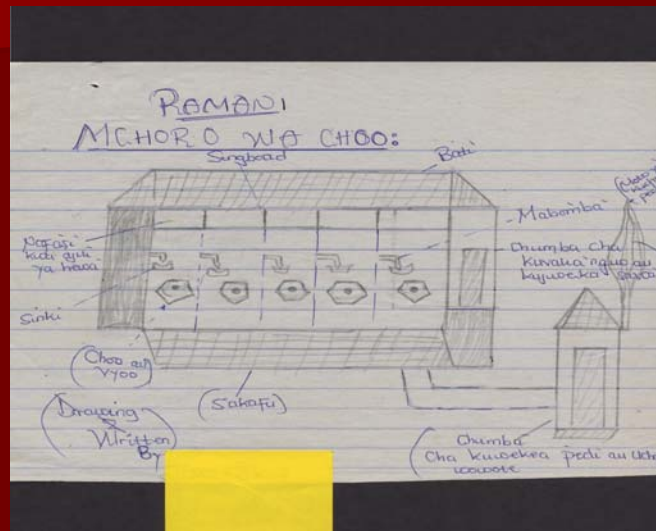 RAMANI
MCHORO WA CHOO:
Singboad
Bati
Mabomba
Nafasi
kidogo
ya hewa
Chumba cha
kuvalia nguo au
kujiweka
Sinki
(Choo au
vyoo)
(Sakafu)
(Drawing
Written
By
(Chumba
Cha kuwekea pedi au
wowote